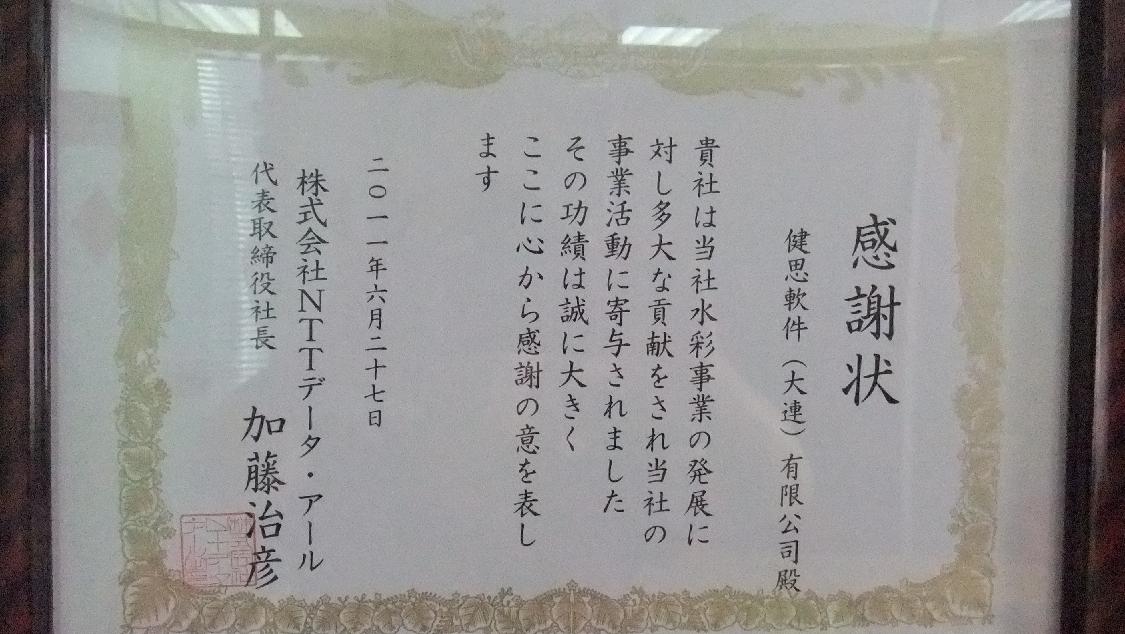 感謝状
健思軟件（大連）有限公司殿
貴社は当社水彩事業の発展に
対し多大な貢献をされ当社の
事業活動に寄与されました
その功績は誠に大きく
ここに心から感謝の意を表し
ます
二〇一一年六月二十七日
株式会社NTTデータ・アール
代表取締役社長 加藤治彦